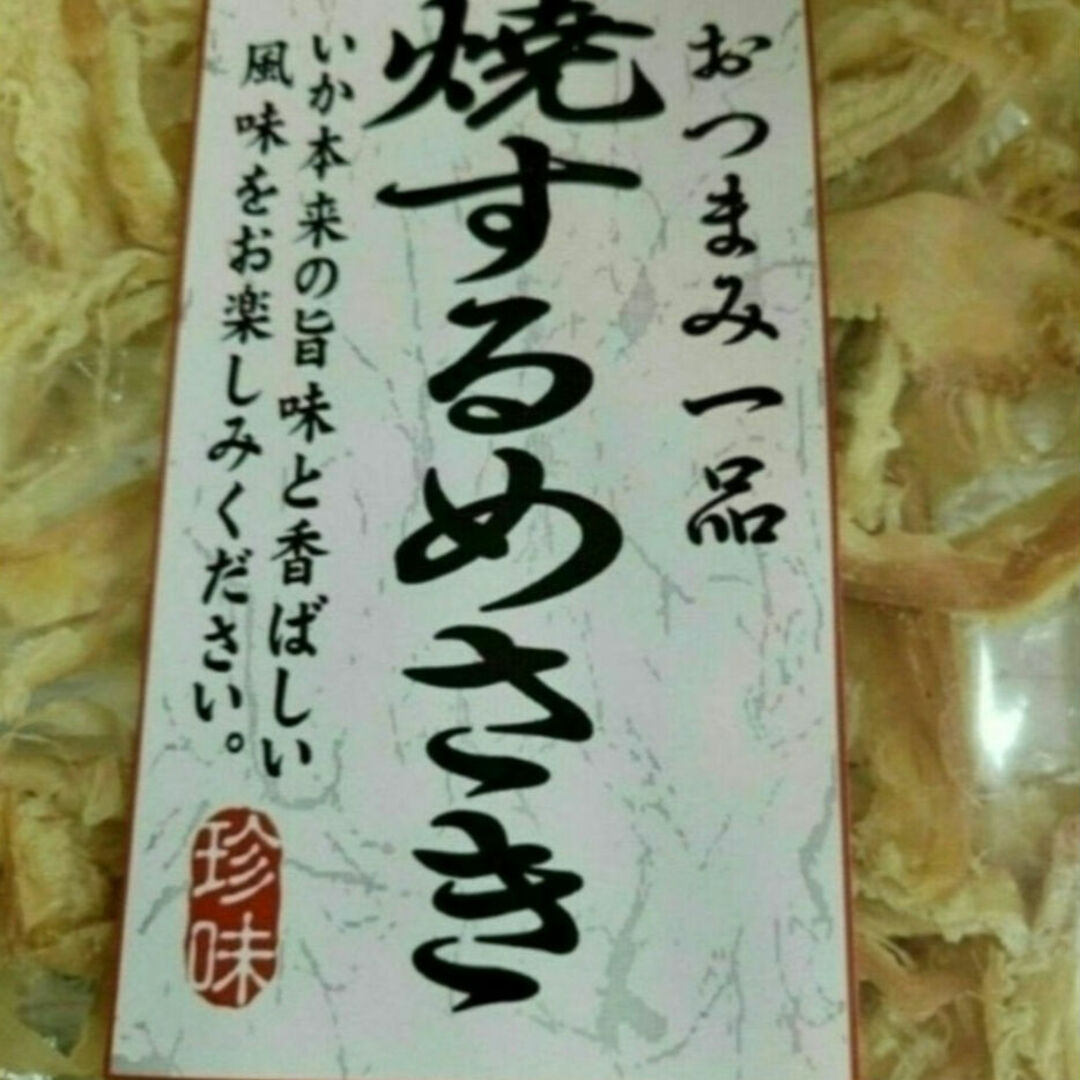 おつまみ一品
焼するめさき
いか本来の旨味と香ばしい
風味をお楽しみください。
珍味